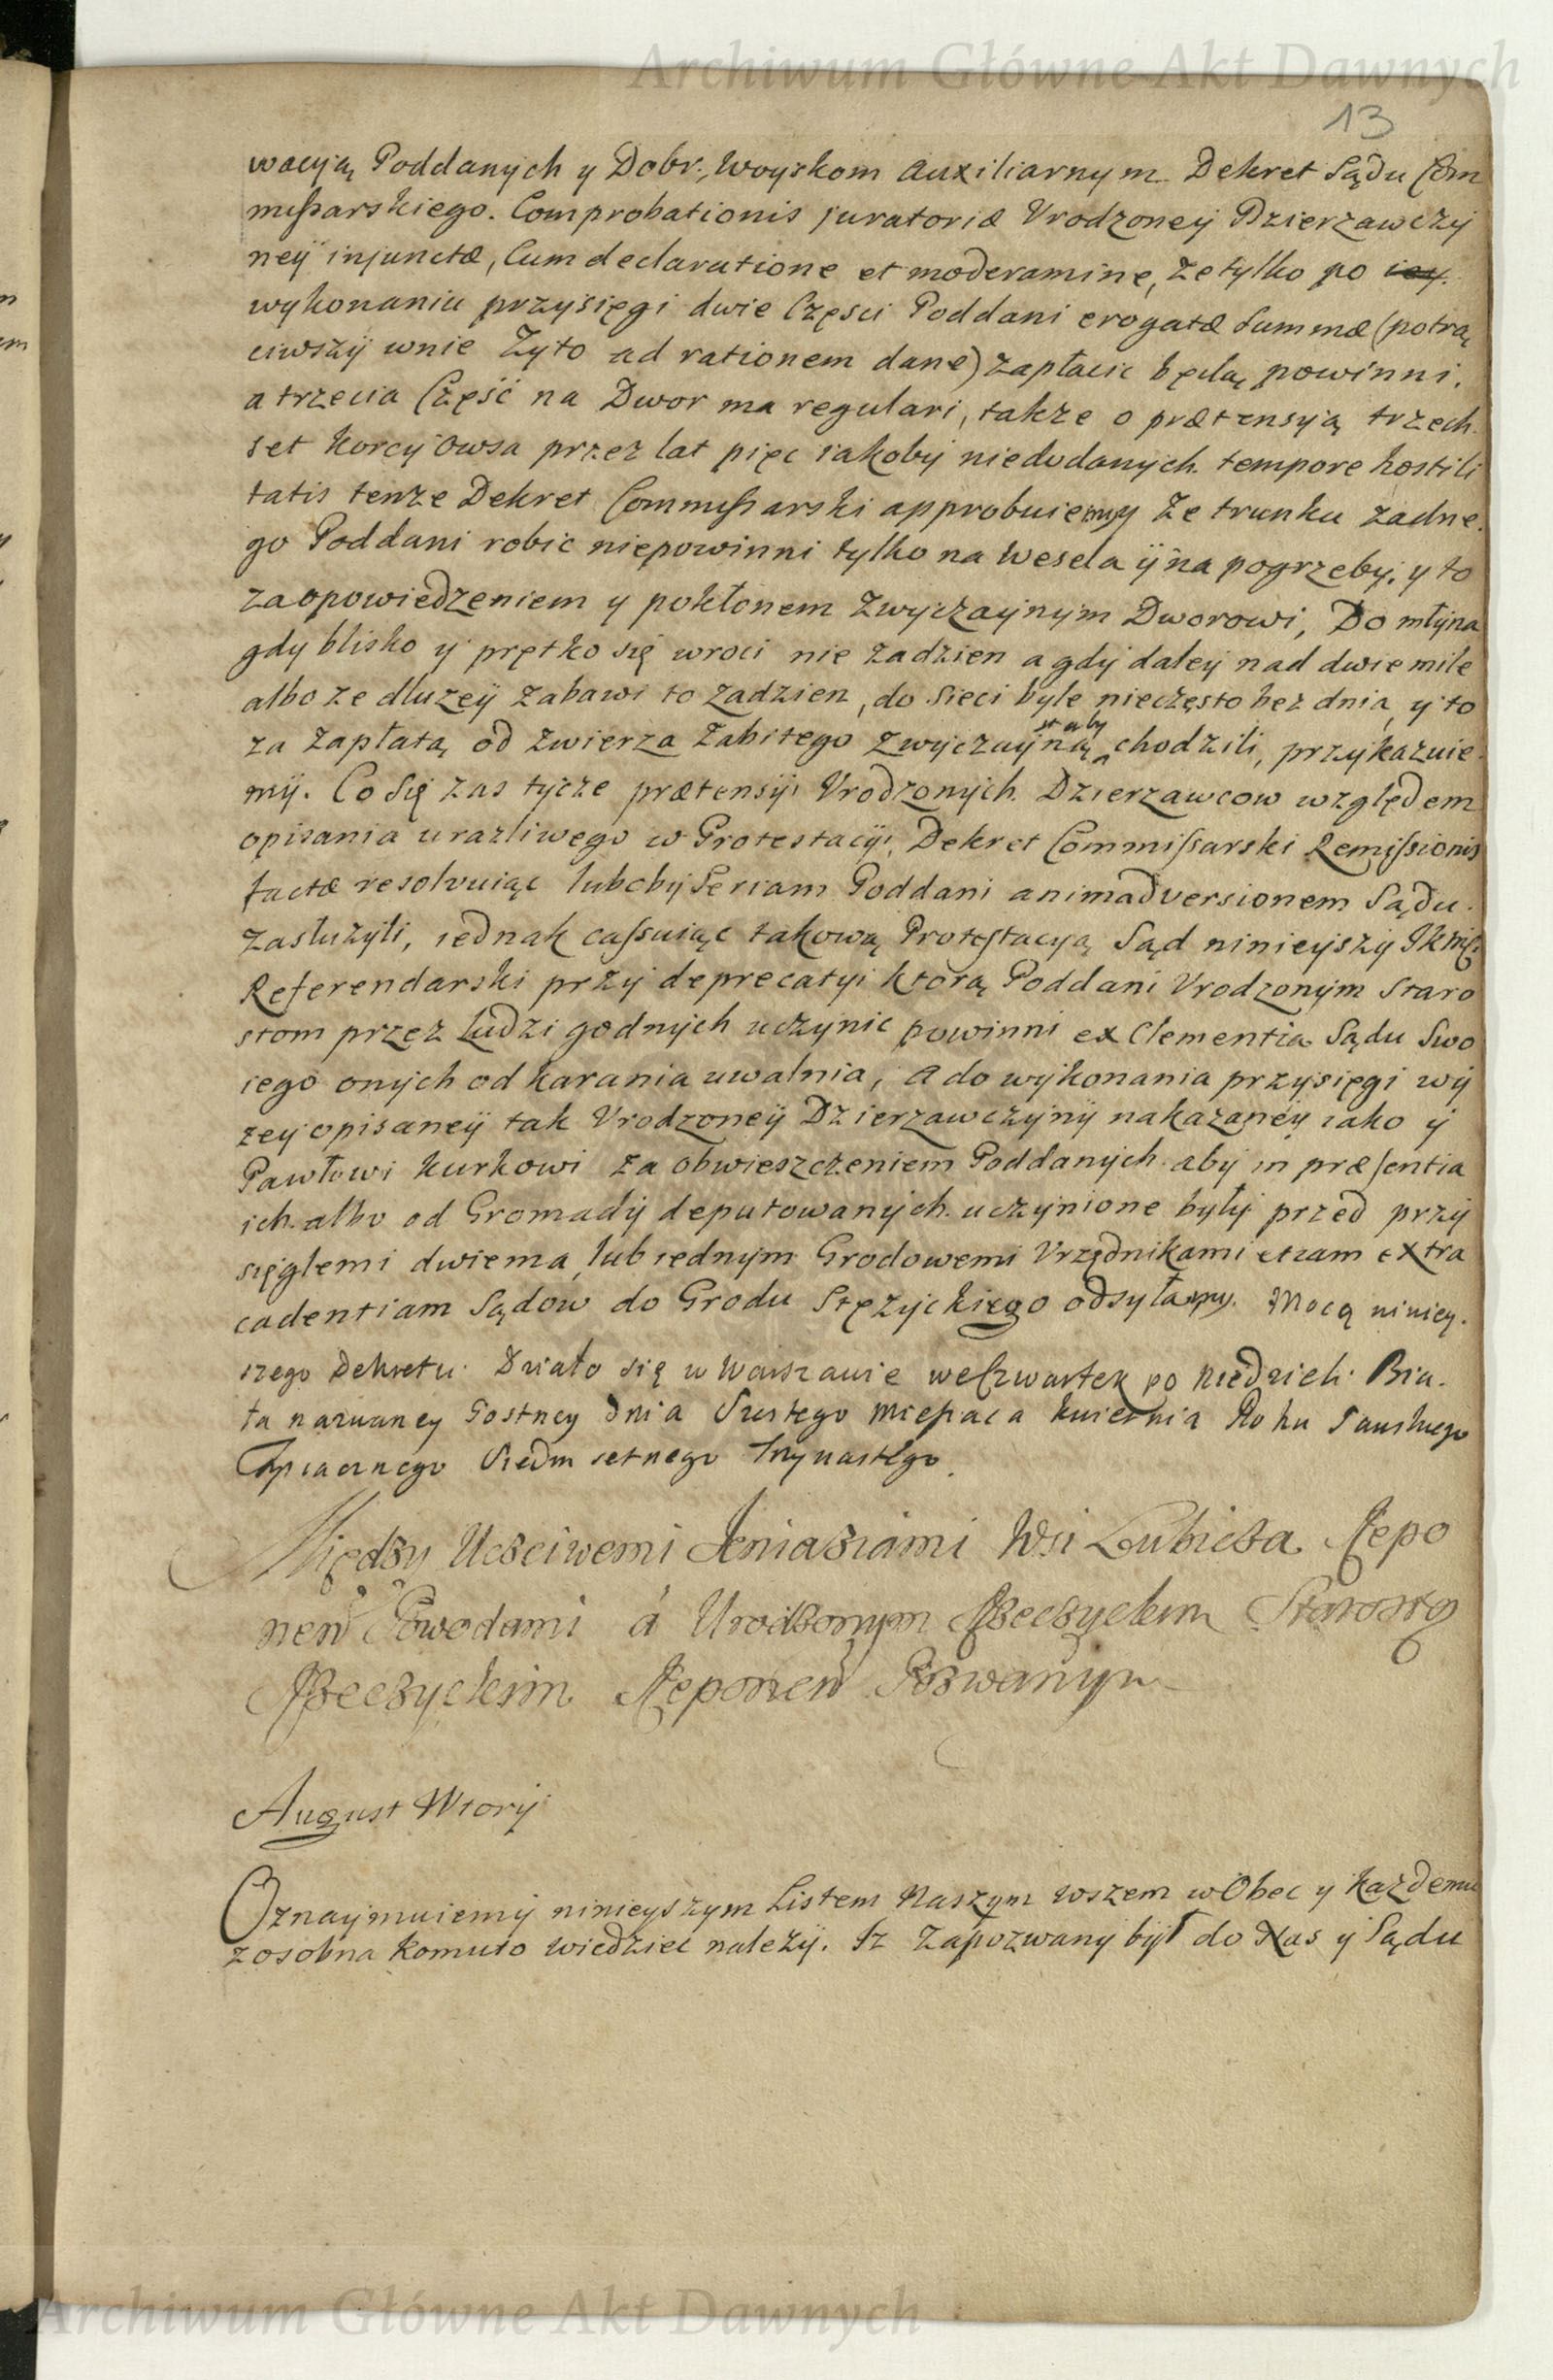 Archiwum Główne Akt Dawnych
13
wacyią Poddanych y Dobr, Woyskom Auxiliarnym Dekret Sądu Com
mißarskiego. Comprobationis juratoriæ Vrodzoney Dzierzawczy
ney injunctæ, Cum declaratione et moderamine, Ze tylko po iey
wykonaniu przysięgi dwie Części Poddani erogatæ Summæ (potrą
ciwszy wnie Zyto ad rationem dane) zapłacic będą powinni,
a trzecia Część na Dwor ma regulari, także o prætensyią trzech
set korcy Owsa przez lat pięc iakoby niedodanych tempore hostili
tatis tenze Dekret Commißarski approbuiemy Ze trunku zadne
go Poddani robic niepowinni tylko na Wesela y na pogrzeby, y to
zaopowiedzeniem y pokłonem Zwyczaynym Dworowi, Do młyna
gdy blisko y prętko się wroci nie zadzien a gdy daley nad dwie mile
albo ze dluzey zabawi to zadzien, do Sieci byle nieczęsto bez dnia, y to
straby
za Zapłatą od Zwierza Zabitego Zwyczayną chodzili, przykazuie
my. Co Się zas tycze prætensyi Vrodzonych Dzierzawcow względem
opisania urazliwego w Protestacyi, Dekret Commißarski Remißionis
factæ resolvuiąc luboby Seriam Poddani animadversionem Sądu
zasłuzyli, iednak caßuiąc takową Protestacyą Sąd ninieyszy JKMs.
Referendarski przy deprecatyi ktorą Poddani Vrodzonym Staro
stom przez Ludzi godnych uczynic powinni ex Clementia Sądu Swo
iego onych od karania uwalnia, A do wykonania przysięgi wy
zey opisaney tak Vrodzoney Dzierzawczyny nakazaney iako y
Pawłowi Kurkowi za obwieszczeniem Poddanych aby in præsentia
ich albo od Gromady deputowanych uczynione były przed przy
sięglemi dwiema lub iednym Grodowemi Vrzędnikami etiam extra
cadentiam Sądow do Grodu Stęzyckiego odsyłamy. Mocą niniey.
szego Dekretu. Działo się w Warszawie we Czwartek po Niedzieli Bia.
ła nazwaney Postney Dnia Szostego Miesiąca Kwietnia Roku Panskiego
Tysiacznego Siedmsetnego Trzynastego.
Między Uczciwemi Kmiaziami Wsi Lubicza Repo
nen Powodami á Urodzonym Rzeczyckim Starostą
Rzeczyckim Reponen Pozwanym
August Wtory
Oznaymuiemy ninieyszym Listem Naszym wszem wObec y kazdemu
zosobna komuto wiedziec nalezy. Iz Zapozwany był do Nas y Sądu
Archiwum Główne Akt Dawnych